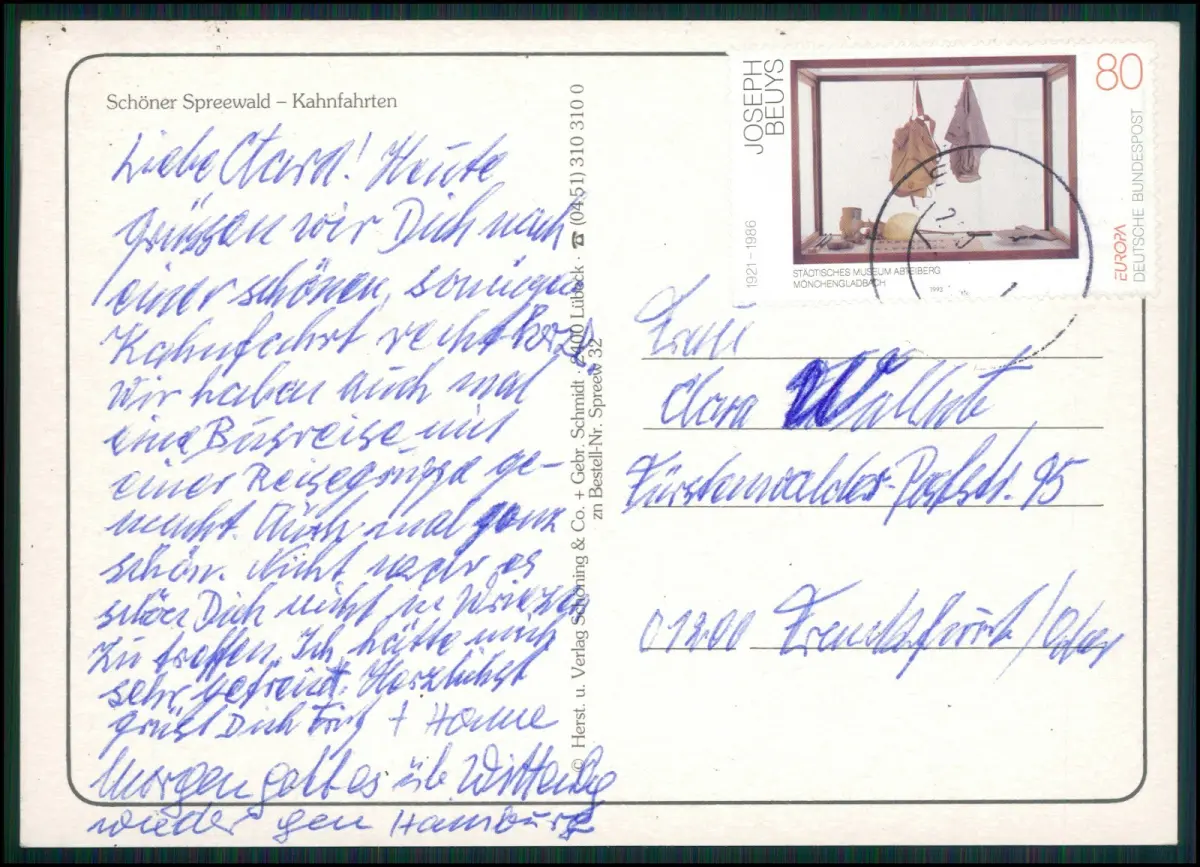 Schöner Spreewald – Kahnfahrten
Liebe Clara! Heute
grüssen wir Dich nach
einer schönen, sonnigen
Kahnfahrt recht herzl.
Wir haben auch mal
eine Busreise mit
einer Reisegruppe ge-
macht. Auch mal ganz
schön. Nicht es
Dich nicht in
zu treffen. Ich hätte mich
sehr gefreut. Herzlichst
grüßt Dich + Hanne
Morgen geht es üb. Wittenbg
wieder gen Hamburg
© Herst. u. Verlag Schöning & Co. + Gebr. Schmidt · 2400 Lübeck · ☎ (04 51) 310 310 0
zn Bestell-Nr. Spreew 32
JOSEPH
BEUYS
1921–1986
80
STÄDTISCHES MUSEUM ABTEIBERG
MÖNCHENGLADBACH
1992
EUROPA
DEUTSCHE BUNDESPOST
Frau
Clara
Fürstenwalder-Poststr. 95
01200 Frankfurt/Oder